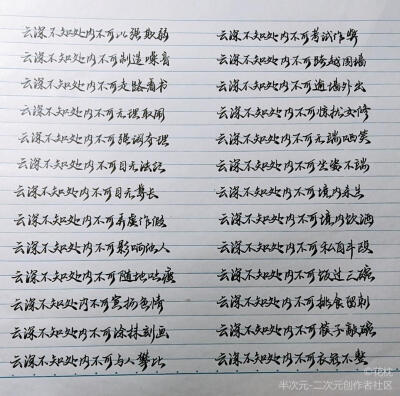 云深不知处内不可以强取弱
云深不知处内不可制造噪音
云深不知处内不可走路看书
云深不知处内不可无理取闹
云深不知处内不可强词夺理
云深不知处内不可目无法纪
云深不知处内不可目无尊长
云深不知处内不可弄虚作假
云深不知处内不可影响他人
云深不知处内不可随地吐痰
云深不知处内不可宣扬色情
云深不知处内不可涂抹刻画
云深不知处内不可与人攀比
云深不知处内不可考试作弊
云深不知处内不可跨越围墙
云深不知处内不可通墙外出
云深不知处内不可惊扰女修
云深不知处内不可无端哂笑
云深不知处内不可坐姿不端
云深不知处内不可境内杀生
云深不知处内不可境内饮酒
云深不知处内不可私自斗殴
云深不知处内不可饭过三碗
云深不知处内不可挑食留剩
云深不知处内不可筷子敲碗
云深不知处内不可衣冠不整
©花枕
半次元-二次元创作者社区